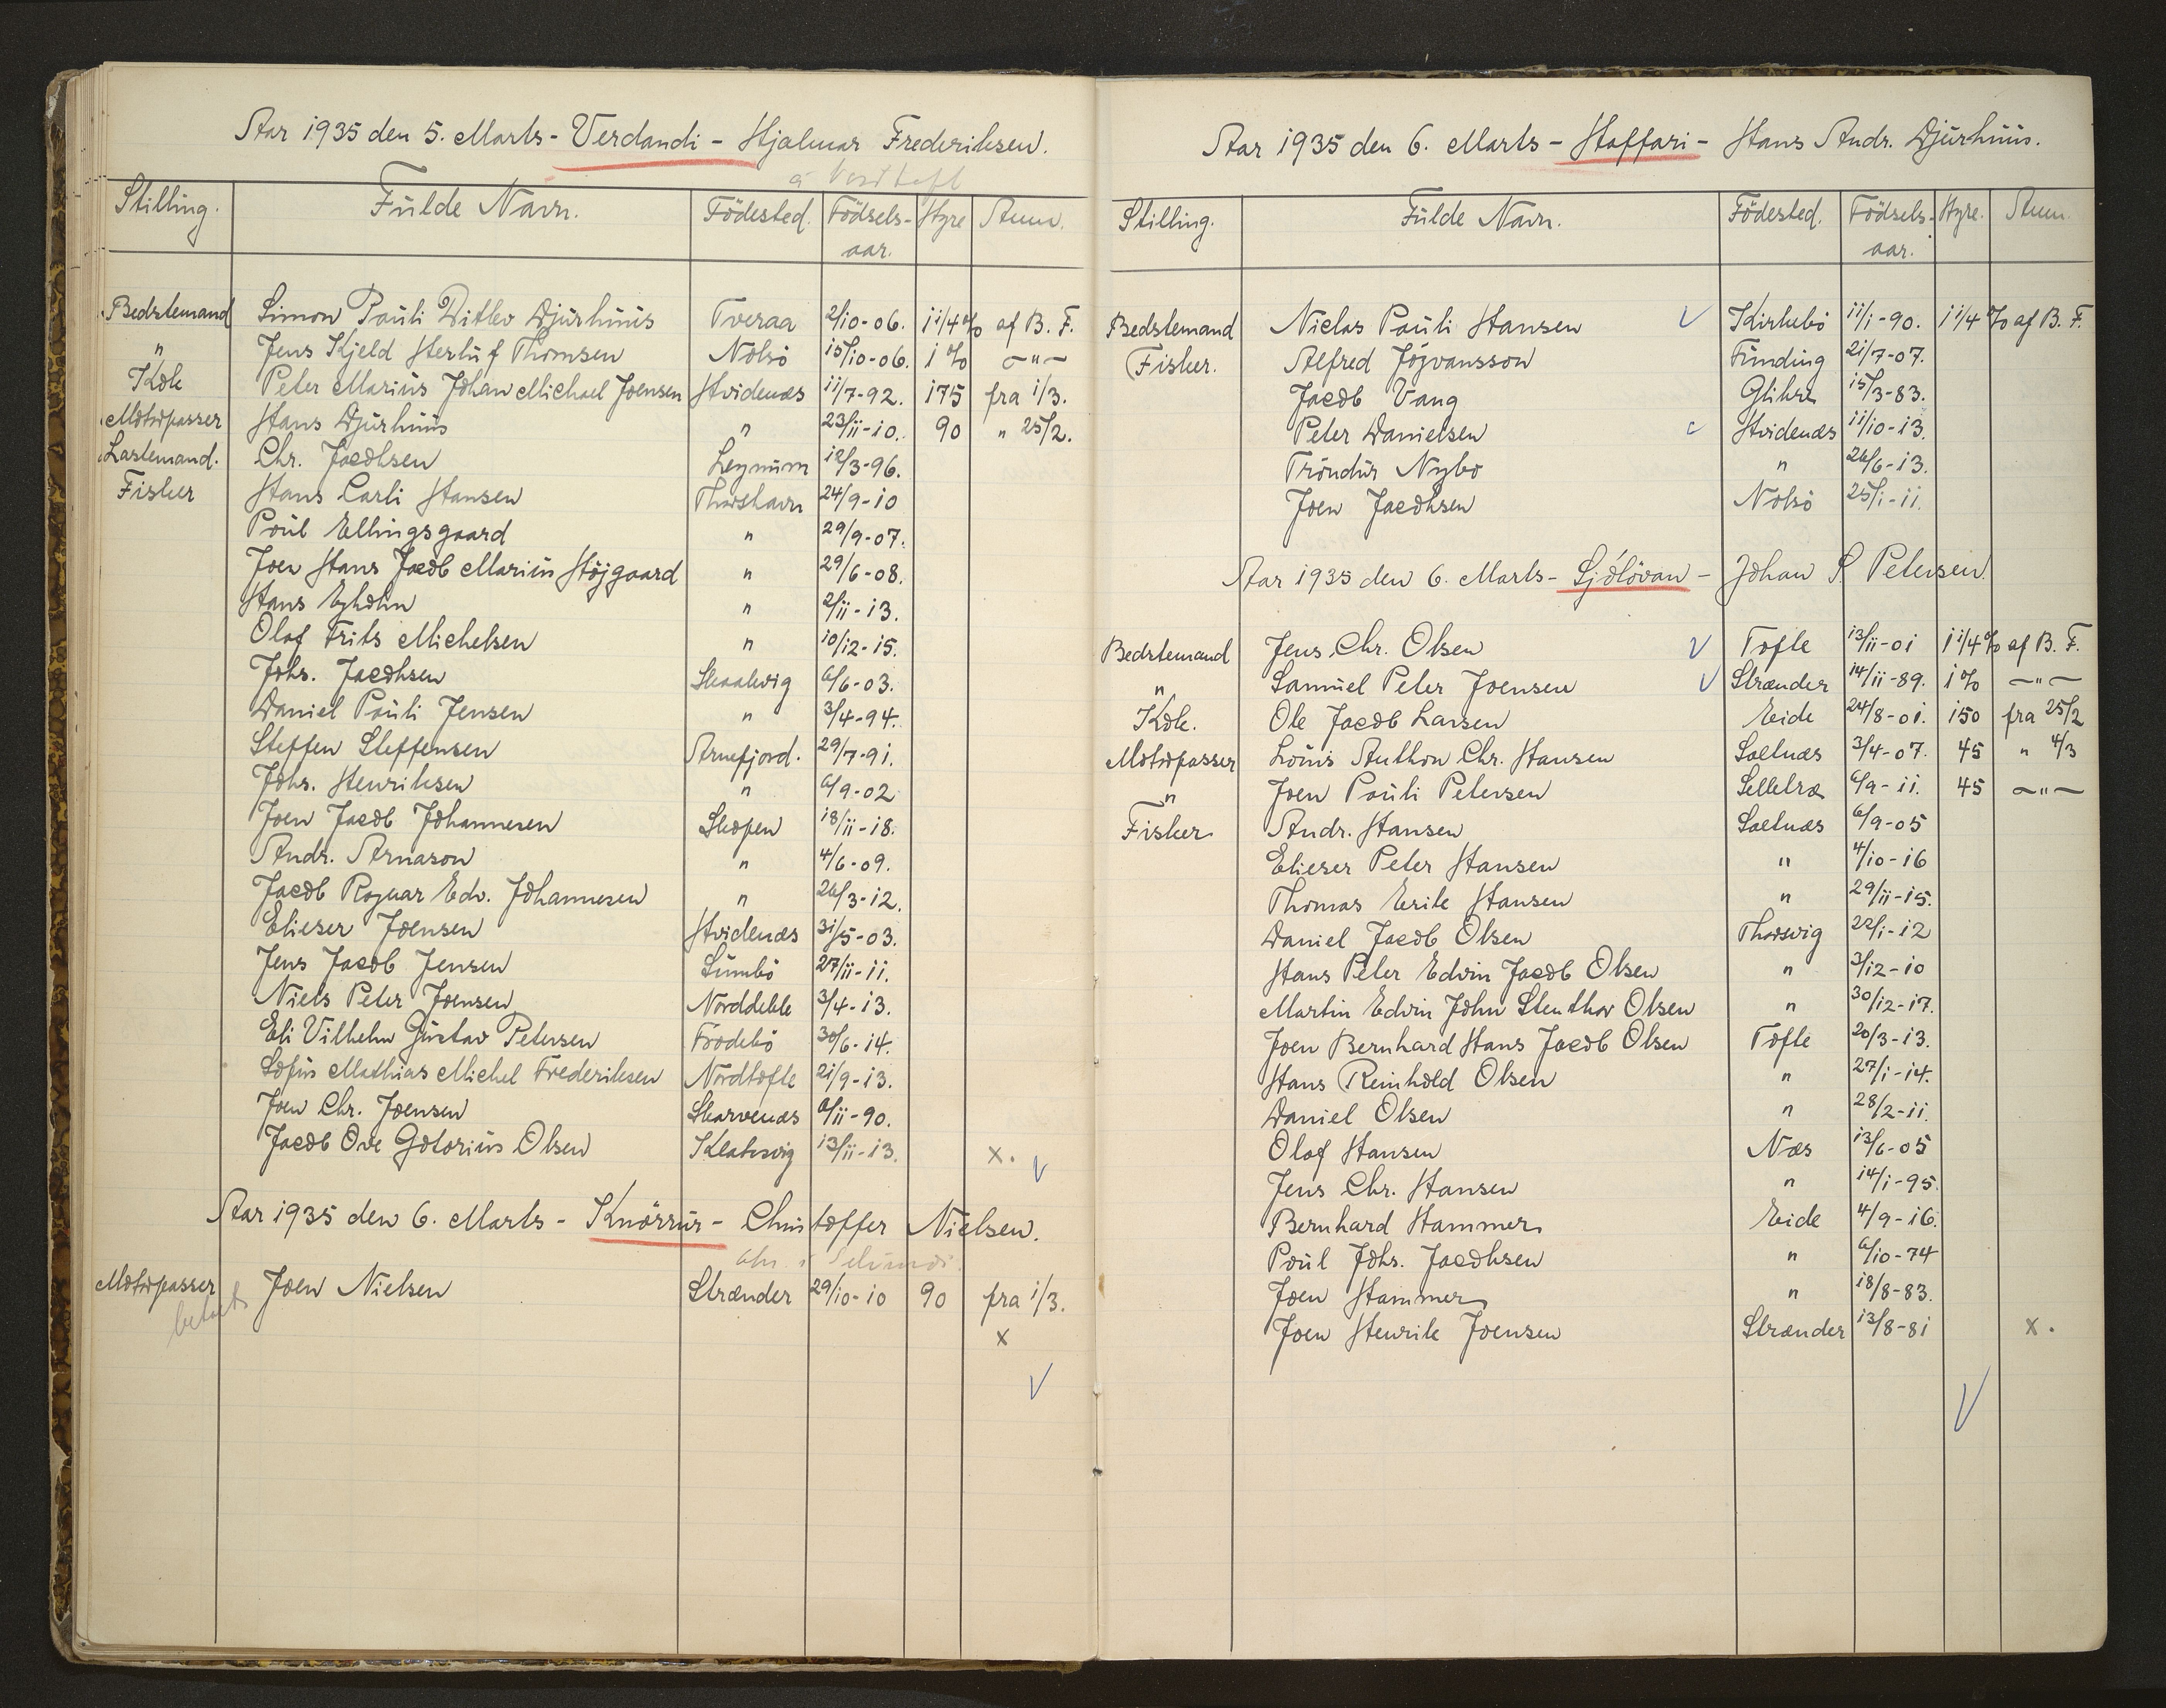 Aar 1935 den 5. Marts - Verdandi - Hjalmar Frederiksen.
Stilling. Fulde Navn. Födested. Födsels-aar. Hyre Anm.
Bedstemand Simon Pauli Ditlev Djurhuus Tveraa 2/10-06. 1 1/4 % af B. F.
" Jens Kjeld Herluf Thomsen Nolsö 15/10-06. 1 % -"-
Kok Peter Marius Johan Michael Joensen Hvidenæs 11/7-92. 175 fra 1/3.
Motorpasser Hans Djurhuus " 23/11-10. 90 " 25/2.
Lastemand. Chr. Jacobsen Leynum 12/3-96.
Fisker Hans Carli Hansen Thorshavn 24/9-10
Poul Ellingsgaard " 29/9-07.
Joen Hans Jacob Marius Höjgaard " 29/6-08.
Hans Eyholm " 2/11-13.
Olaf Frits Michelsen " 10/12-15.
Johs. Jacobsen Skaalevig 6/6-03.
Daniel Pauli Jensen " 3/4-94.
Steffen Steffensen Arnefjord. 29/7-91.
Johs. Henriksen " 6/9-02
Joen Jacob Johannesen Skopen 18/11-18.
Andr. Arnason " 4/6-09.
Jacob Rognar Edv. Johannesen " 26/3-12.
Elieser Joensen Hvidenæs 31/5-03.
Jens Jacob Jensen Sumbö 27/11-11.
Niels Peter Joensen Norddeble 3/4-13.
Eli Vilhelm Gustav Petersen Frodebö 30/6-14.
Sofus Mathias Michel Frederiksen Nordtofte 21/9-13.
Joen Chr. Joensen Skarvenæs 6/11-90.
Jacob Ove Gotorius Olsen Klaksvig 13/11-13. x.
Aar 1935 den 6. Marts - Knörrur - Christoffer Nielsen.
Motorpasser Joen Nielsen Strænder 29/10-10 90 fra 1/3.
x
Aar 1935 den 6. Marts - Staffari - Hans Andr. Djurhuus.
Stilling. Fulde Navn. Födested. Födsels-aar. Hyre. Anm.
Bedstemand Niclas Pauli Hansen Kirkebö 11/1-90. 1 1/4 % af B. F.
Fisker. Alfred Jógvansson Funding 21/7-07.
Jacob Vang Glibre 15/3-83.
Peter Danielsen Hvidenæs 11/10-13.
Tróndur Nybo " 26/6-13.
Joen Jacobsen Nolsö 25/1-11.
Aar 1935 den 6. Marts - Sjólóvan - Johan P Petersen.
Bedstemand Jens Chr. Olsen Tofte 13/11-01 1 1/4 % af B. F.
" Samuel Peter Joensen Strænder 14/11-89. 1 % -"-
Kok. Ole Jacob Larsen Eide 24/8-01. 150 fra 25/2
Motorpasser Louis Anthon Chr. Hansen Saltnæs 3/4-07. 45 " 4/3
" Joen Pauli Petersen Selletræ 6/9-11. 45 -"-
Fisker Andr. Hansen Saltnæs 6/9-05
Elieser Peter Hansen " 4/10-16
Thomas Erik Hansen " 29/11-15.
Daniel Jacob Olsen Thorsvig 22/1-12
Hans Peter Edvin Jacob Olsen " 3/12-10
Martin Edvin John Stenthor Olsen " 30/12-17.
Joen Bernhard Hans Jacob Olsen Tofte 20/3-13.
Hans Reinhold Olsen " 27/1-14.
Daniel Olsen " 28/2-11.
Olaf Hansen Næs 13/6-05
Jens Chr. Hansen " 14/1-95.
Bernhard Hammer Eide 4/9-16.
Poul Johs. Jacobsen " 6/10-74
Joen Hammer " 18/8-83.
Joen Henrik Joensen Strænder 13/8-81 x.